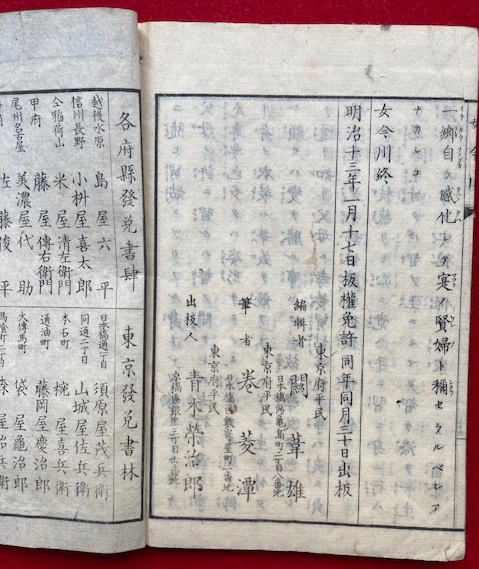 一鄉自ラ感化シテ寔ノ賢婦ト稱セラルベシア
ナカシコ
女今川終
明治十三年一月十七日板權免許 同年同月三十日出板
東京府平民
編輯者 關葦雄
東京府平民
筆者 卷菱潭
東京府平民
出板人 青木榮治郎
各府縣發兌書肆
越後水原 島屋六平
信州長野 小桝屋喜太郎
仝稲荷山 米屋清左衛門
甲府 藤屋傳右衛門
尾州名古屋 美濃屋代助
佐藤俊平
東京發兌書林
日本橋通一丁目 須原屋茂兵衛
同通二丁目 山城屋佐兵衛
本石町 椀屋喜兵衛
通油町 藤岡屋慶治郎
大傳馬町 袋屋亀治郎
森屋治兵衛